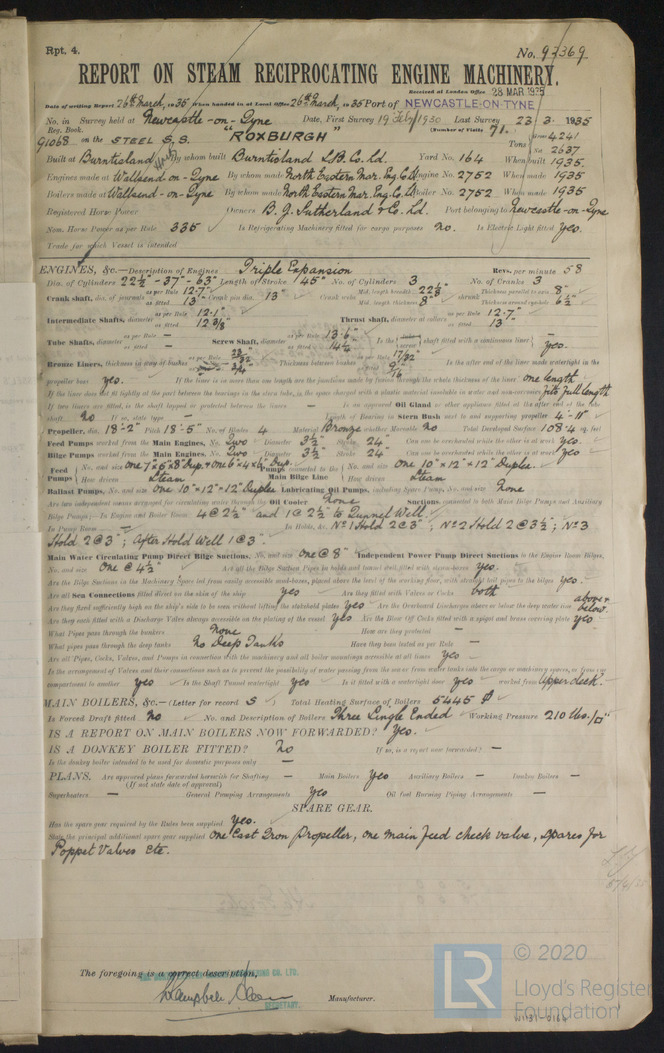 Rpt. 4.
No. 92369
REPORT ON STEAM RECIPROCATING ENGINE MACHINERY.
Received at London Office 28 MAR 1935
Date of writing Report 26th March, 1935 When handed in at Local Office 26th March, 1935 Port of NEWCASTLE-ON-TYNE
No. in Survey held at Newcastle-on-Tyne Date, First Survey Last Survey 23-3-1935
Reg. Book. (Number of Visits 71.)
91068 on the STEEL S.S. "ROXBURGH" Tons Gross 4241
Net 2637
Built at Burntisland By whom built Burntisland S.B. Co. Ld. Yard No. 164 When built 1935.
Engines made at Wallsend-on-Tyne By whom made North Eastern Mar. Eng. Co. Ld. Engine No. 2752 When made 1935
Boilers made at Wallsend-on-Tyne By whom made North Eastern Mar. Eng. Co. Ld. Boiler No. 2752 When made 1935
Registered Horse Power Owners B. J. Sutherland & Co. Ld. Port belonging to Newcastle-on-Tyne
Nom. Horse Power as per Rule 335 Is Refrigerating Machinery fitted for cargo purposes No. Is Electric Light fitted Yes.
Trade for which Vessel is intended
ENGINES, &c.—Description of Engines Triple Expansion Revs. per minute 58
Dia. of Cylinders 22½"-37"-63" Length of Stroke 45" No. of Cylinders 3 No. of Cranks 3
Crank shaft, dia. of journals as per Rule 12.7" as fitted 13" Crank pin dia. 13" Crank webs Mid. length breadth 22⅞" Mid. length thickness 8" shrunk Thickness parallel to axis 8" Thickness around eyehole 6½"
Intermediate Shafts, diameter as per Rule 12.1" as fitted 12⅜" Thrust shaft, diameter at collars as per Rule 12.7" as fitted 13"
Tube Shafts, diameter as per Rule — as fitted — Screw Shaft, diameter as per Rule 13.6" as fitted 14½" Is the shaft fitted with a continuous liner Yes.
Bronze Liners, thickness in way of bushes as per Rule as fitted 3/4" Thickness between bushes as per Rule 17/32" as fitted 9/16" Is the after end of the liner made watertight in the
propeller boss Yes. If the liner is in more than one length are the junctions made by fusion through the whole thickness of the liner one length
If the liner does not fit tightly at the part between the bearings in the stern tube, is the space charged with a plastic material insoluble in water and non-corrosive fits full length
If two liners are fitted, is the shaft lapped or protected between the liners — Is an approved Oil Gland or other appliance fitted at the after end of the tube
shaft No If so, state type — Length of Bearing in Stern Bush next to and supporting propeller 4'-11"
Propeller, dia. 18'-2" Pitch 18'-5" No. of Blades 4 Material Bronze whether Moveable No Total Developed Surface 108.4 sq. feet
Feed Pumps worked from the Main Engines, No. Two Diameter 3½" Stroke 24" Can one be overhauled while the other is at work Yes.
Bilge Pumps worked from the Main Engines, No. Two Diameter 3½" Stroke 24" Can one be overhauled while the other is at work Yes.
Feed Pumps No. and size One 7"x5"x8" Dup. & one 6"x4"x6" Dup. Pumps connected to the Main Bilge Line No. and size One 10"x12"x12" Duplex
How driven Steam How driven Steam
Ballast Pumps, No. and size One 10"x12"x12" Duplex Lubricating Oil Pumps, including Spare Pump, No. and size None
Are two independent means arranged for circulating water through the Oil Cooler None Suctions, connected to both Main Bilge Pumps and Auxiliary
Bilge Pumps;—In Engine and Boiler Room 4 @ 2½" and 1 @ 2½" to Tunnel Well.
In Pump Room — In Holds, &c. No. 1 Hold 2 @ 3"; No. 2 Hold 2 @ 3½"; No. 3
Hold 2 @ 3"; After Hold Well 1 @ 3".
Main Water Circulating Pump Direct Bilge Suctions, No. and size One @ 8" Independent Power Pump Direct Suctions to the Engine Room Bilges,
No. and size One @ 4½" Are all the Bilge Suction Pipes in holds and tunnel well fitted with strum-boxes Yes.
Are the Bilge Suctions in the Machinery Space led from easily accessible mud-boxes, placed above the level of the working floor, with straight tail pipes to the bilges Yes.
Are all Sea Connections fitted direct on the skin of the ship Yes Are they fitted with Valves or Cocks both
Are they fixed sufficiently high on the ship's side to be seen without lifting the stokehold plates Yes Are the Overboard Discharges above or below the deep water line above & below.
Are they each fitted with a Discharge Valve always accessible on the plating of the vessel Yes Are the Blow Off Cocks fitted with a spigot and brass covering plate Yes
What Pipes pass through the bunkers None How are they protected —
What pipes pass through the deep tanks No Deep Tanks Have they been tested as per Rule —
Are all Pipes, Cocks, Valves, and Pumps in connection with the machinery and all boiler mountings accessible at all times Yes
Is the arrangement of Valves and their connections such as to prevent the possibility of water passing from the sea or from water tanks into the cargo or machinery spaces, or from one
compartment to another Yes Is the Shaft Tunnel watertight Yes Is it fitted with a watertight door Yes worked from Upper deck.
MAIN BOILERS, &c.—(Letter for record S) Total Heating Surface of Boilers 5445
Is Forced Draft fitted No No. and Description of Boilers Three Single Ended Working Pressure 210 lbs./□"
IS A REPORT ON MAIN BOILERS NOW FORWARDED? Yes.
IS A DONKEY BOILER FITTED? No If so, is a report now forwarded? —
Is the donkey boiler intended to be used for domestic purposes only —
PLANS. Are approved plans forwarded herewith for Shafting — Main Boilers Yes Auxiliary Boilers — Donkey Boilers —
(If not state date of approval)
Superheaters — General Pumping Arrangements Yes Oil fuel Burning Piping Arrangements —
SPARE GEAR.
Has the spare gear required by the Rules been supplied Yes.
State the principal additional spare gear supplied One Cast Iron Propeller, one main feed check valve, spares for
Poppet Valves etc.
The foregoing is a correct description,
SECRETARY.
Manufacturer.
LR
© 2020
Lloyd's Register
Foundation
W1131-0164